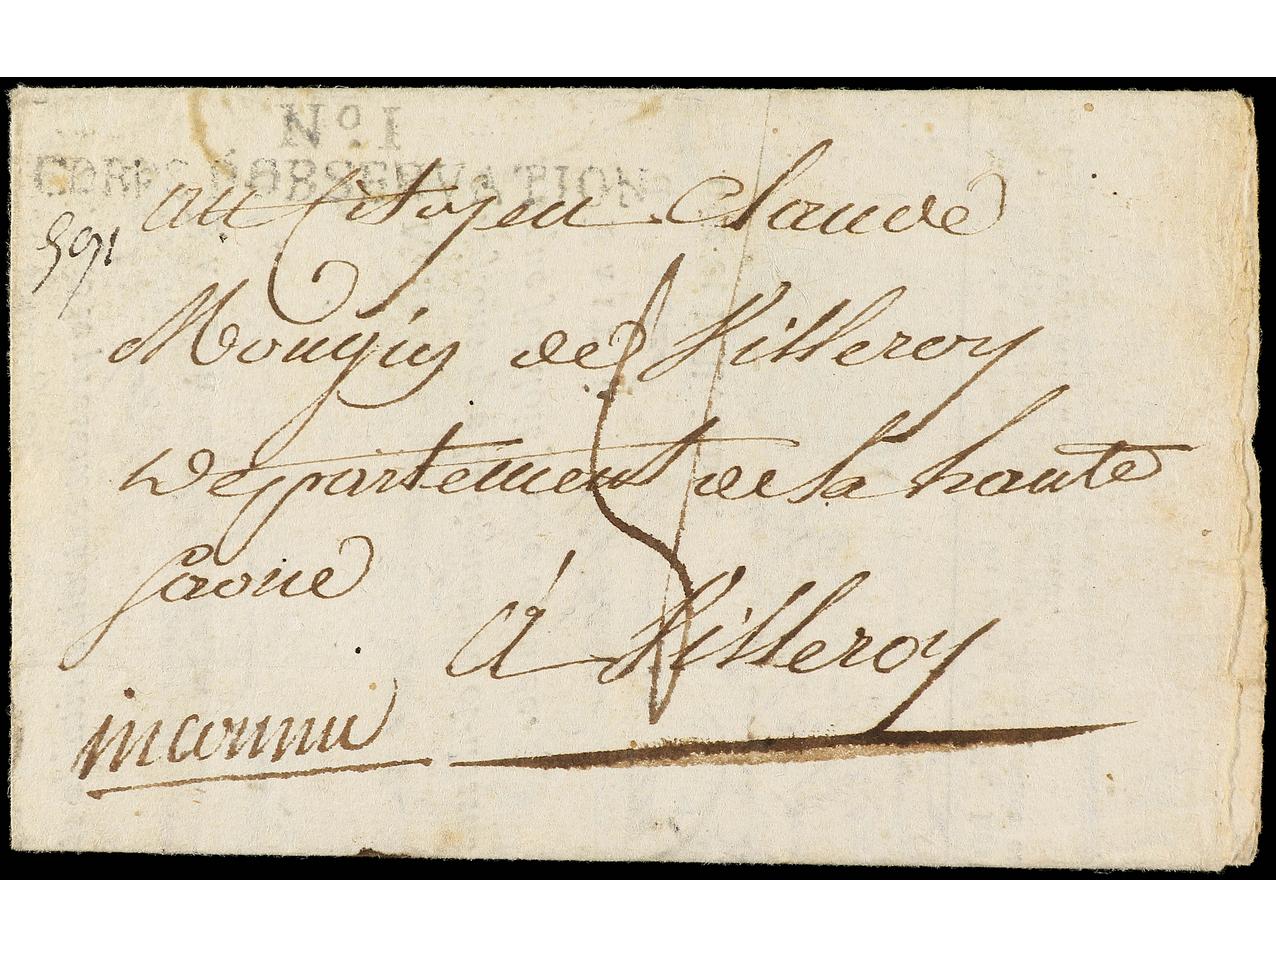 No. I
CORPS D'OBSERVATION
591
au Citoyen Claude
Mougin de Villeroy
departement de la haute
saone
à Villeroy
inconnu